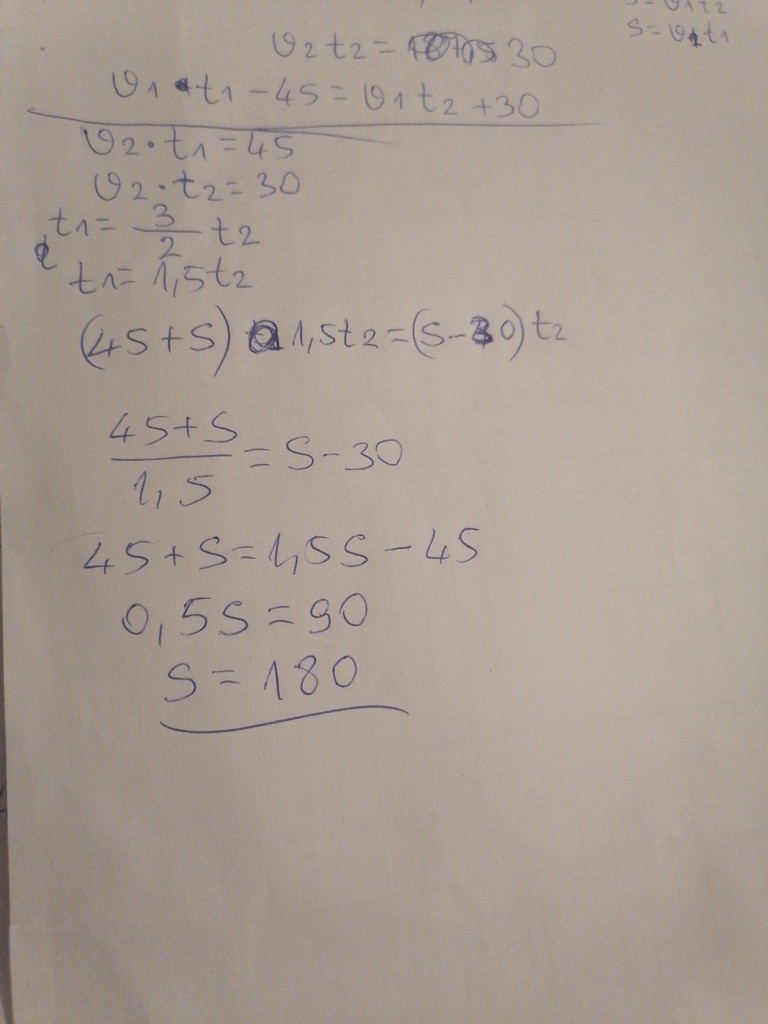 S = v1t2
S = v1t1
v2 t2 = 30
v1 • t1 - 45 = v1 t2 + 30
v2 • t1 = 45
v2 • t2 = 30
t1 = 3/2 t2
t1 = 1,5t2
(45+S) 1,5t2 = (S-30)t2
45+S/1,5 = S-30
45+S = 1,5S - 45
0,5S = 90
S = 180